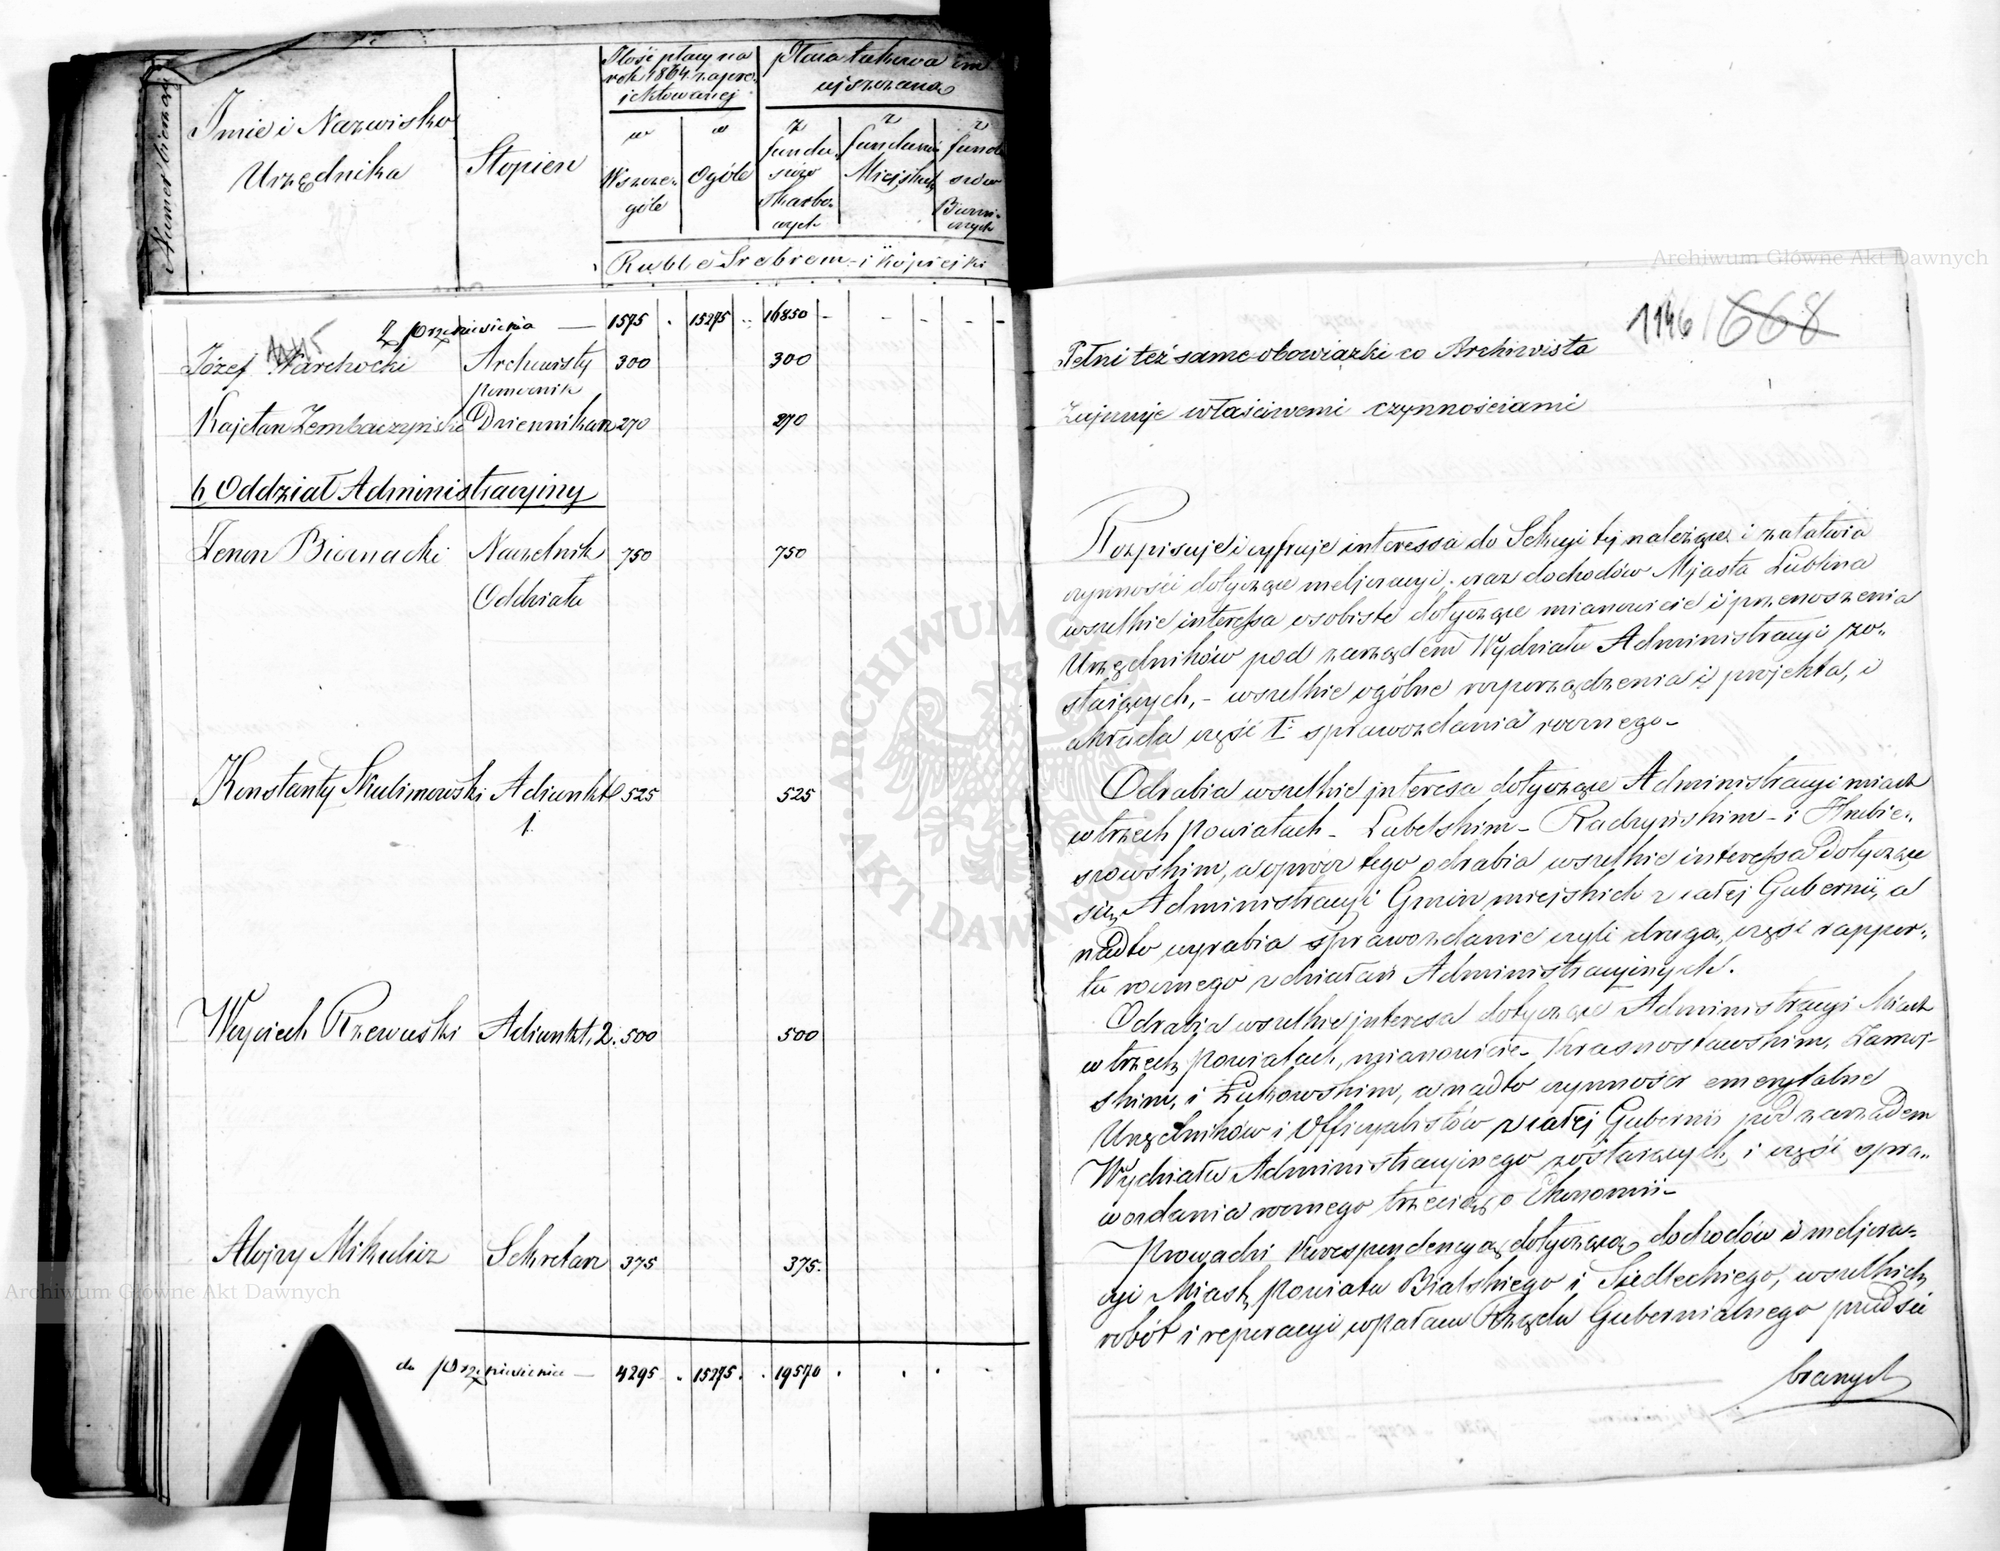 Numer bieżący
Imie i Nazwisko
Urzędnika
Stopien
Ilość płacy na
rok 1864 zapro-
jektowanej
w
Wszcze-
góle
w
Ogóle
Płaca takowa
uiszczana
z
fundu-
szów
Skarbo-
wych
z
funduszów
Miejskich
z
fundu
szów
Ruble Srebrem i kopiejki
Z przeniesienia — 1575 15275 16850
Józef Warchocki Archiwisty 300 300
pomocnik
Kajetan Zembaczyński Dziennikarz 270 270
b Oddział Administracyjny
Zenon Biernacki Naczelnik 750 750
Oddziału
Konstanty Skulimowski Adiunkt 525 525
1.
Woyciech Rzewuski Adiunkt 2. 500 500
Alojzy Mikulicz Sekretarz 375 375.
do przeniesienia — 4295 15275 19570
1146 / 668
Pełni też same obowiązki co Archiwista
Zajmuje właściwemi czynnościami
Rozpisuje i cyfruje interessa do Sekcyi tej należące i załatwia
czynności dotyczące meljoracyi, oraz dochodów Miasta Lublina
wszelkie interessa osobiste dotyczące mianowicie i przenoszenia
Urzędników pod zarządem Wydziału Administracyi zo-
stających, - wszelkie ogólne rozporządzenia i projekta, i
układa część I: sprawozdania rocznego -
Odrabia wszelkie interesa dotyczące Administracyi miast
w trzech powiatach - Lubelskim - Radzyńskim - i Hrubie-
szowskim, a oprócz tego odrabia wszelkie interessa dotyczące
się Administracyi Gmin miejskich z całej Gubernii, a
nadto wyrabia sprawozdanie czyli drugą część rappor-
tu rocznego z działań Administracyjnych.
Odrabia wszelkie interesa dotyczące Administracyi Miast
w trzech powiatach, mianowicie - Krasnostawskim, Zamoj-
skim, i Łukowskim, a nadto czynności emerytalne
Urzędników i Officyalistów z całej Gubernii pod zarządem
Wydziału Administracyjnego zostających, i część spra-
wozdania rocznego trzecią o Ekonomii -
Prowadzi Korespondencyą dotyczącą dochodów i meljora-
cyi Miast powiatu Bialskiego i Siedleckiego, wszelkich
robót i reperacyi w pałacu Rządu Gubernialnego przedsię
branych
ARCHIWUM GŁÓWNE AKT DAWNYCH
Archiwum Główne Akt Dawnych
Archiwum Główne Akt Dawnych